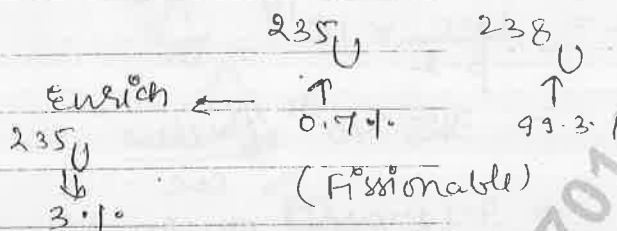 235U 238U
Enrich ← ↑ ↑
0.7% 99.3%
235U (Fissionable)
⇓
3%
701